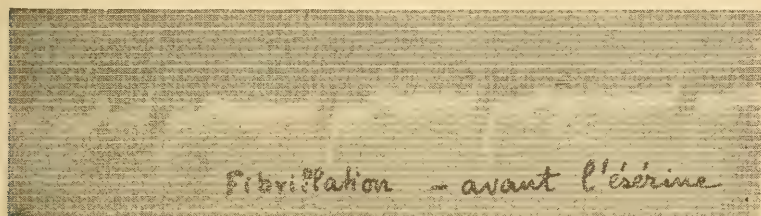 Fibrillation - avant l'ésérine